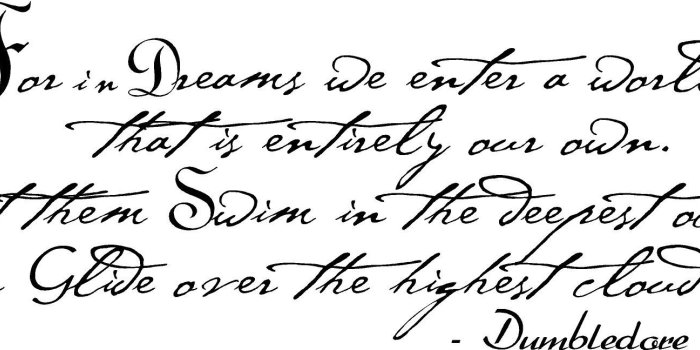 For in Dreams we enter a world
that is entirely our own.
them Swim in the deepest
Glide over the highest cloud
- Dumbledore